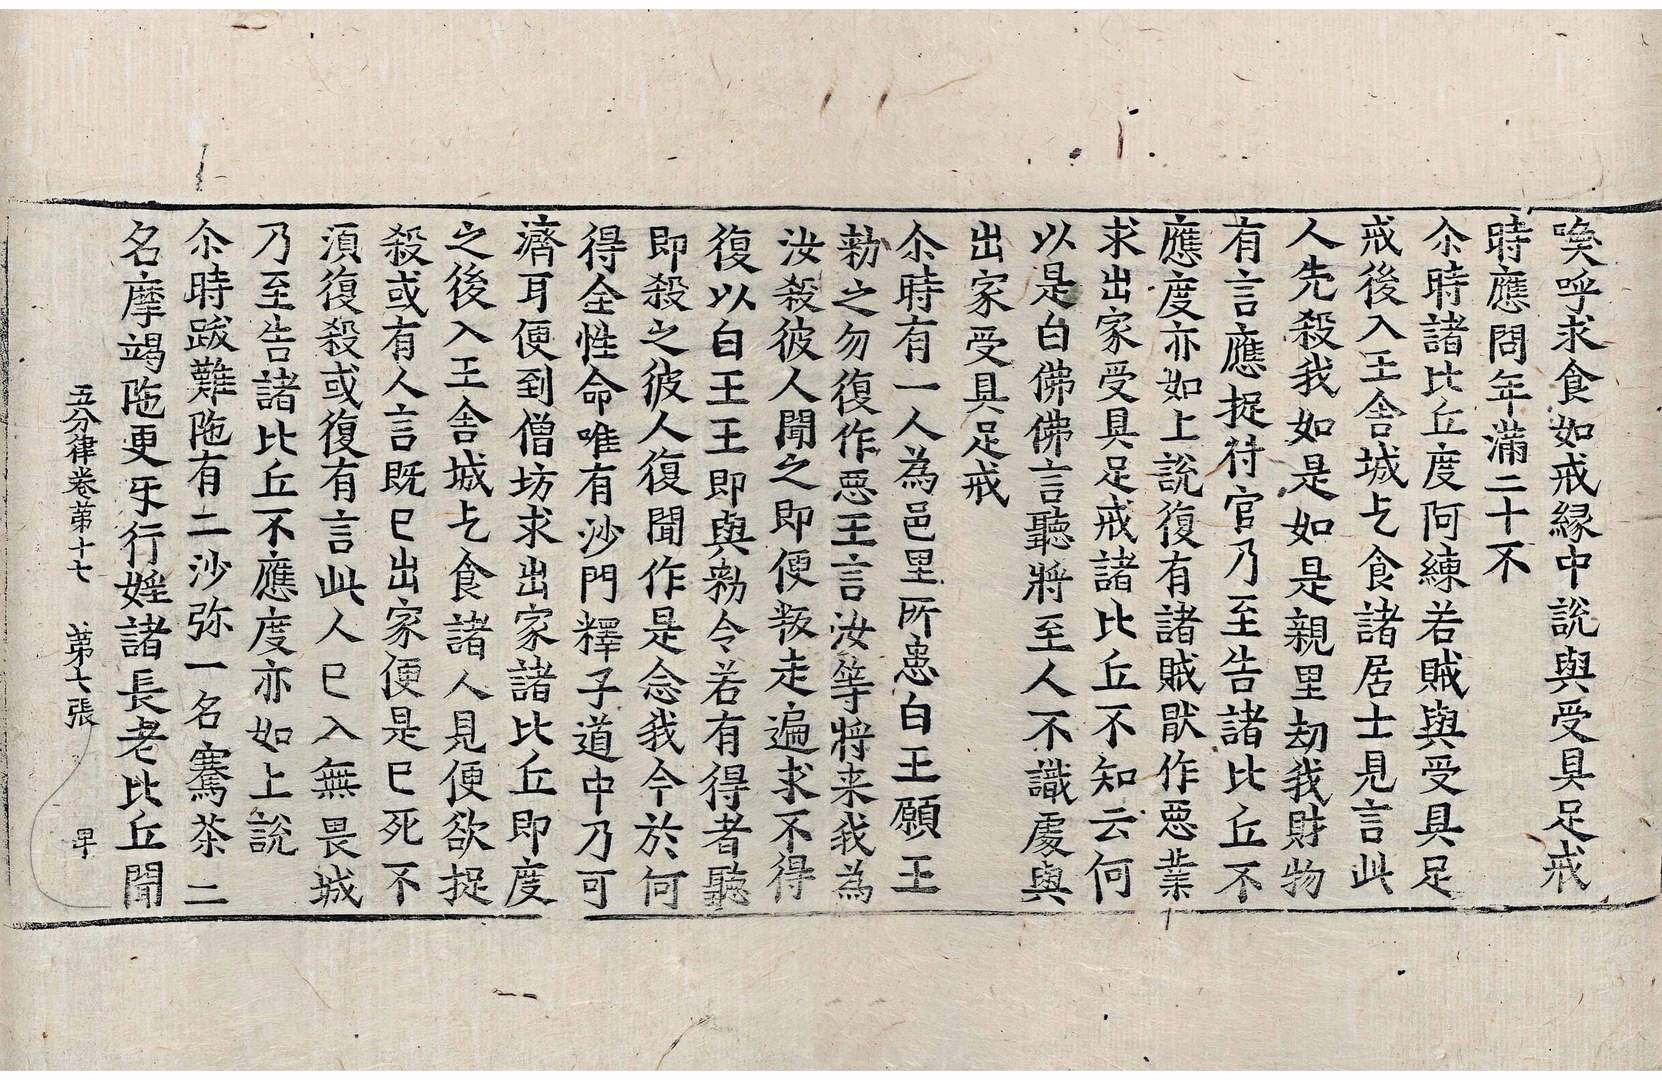 喚呼求食如戒縁中說與受具足戒
時應問年滿二十不
尒時諸比丘度阿練若賊與受具足
戒後入王舍城乞食諸居士見言此
人先殺我如是如是親里劫我財物
有言應捉付官乃至告諸比丘不
應度亦如上說復有諸賊猒作惡業
求出家受具足戒諸比丘不知云何
以是白佛佛言聽將至人不識處與
出家受具足戒
尒時有一人為邑里所患白王願王
勑之勿復作惡王言汝等將来我為
汝殺彼人聞之即便叛走遍求不得
復以白王王即與勑令若有得者聽
即殺之彼人復聞作是念我今於何
得全性命唯有沙門釋子道中乃可
濟耳便到僧坊求出家諸比丘即度
之後入王舍城乞食諸人見便欲捉
殺或有人言既已出家便是已死不
須復殺或復有言此人已入無畏城
乃至告諸比丘不應度亦如上說
尒時跋難陁有二沙弥一名騫茶二
名摩竭陁更牙行婬諸長老比丘聞
五分律卷苐十七　苐七張　早